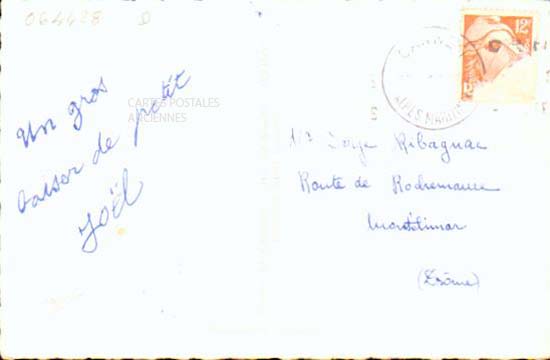 064428 D
Un gros
baiser de petit
Joël
CARTES POSTALES
ANCIENNES
12F
ALPES MARITIMES
Ribagnac
Route de
Montélimar
(Drôme)